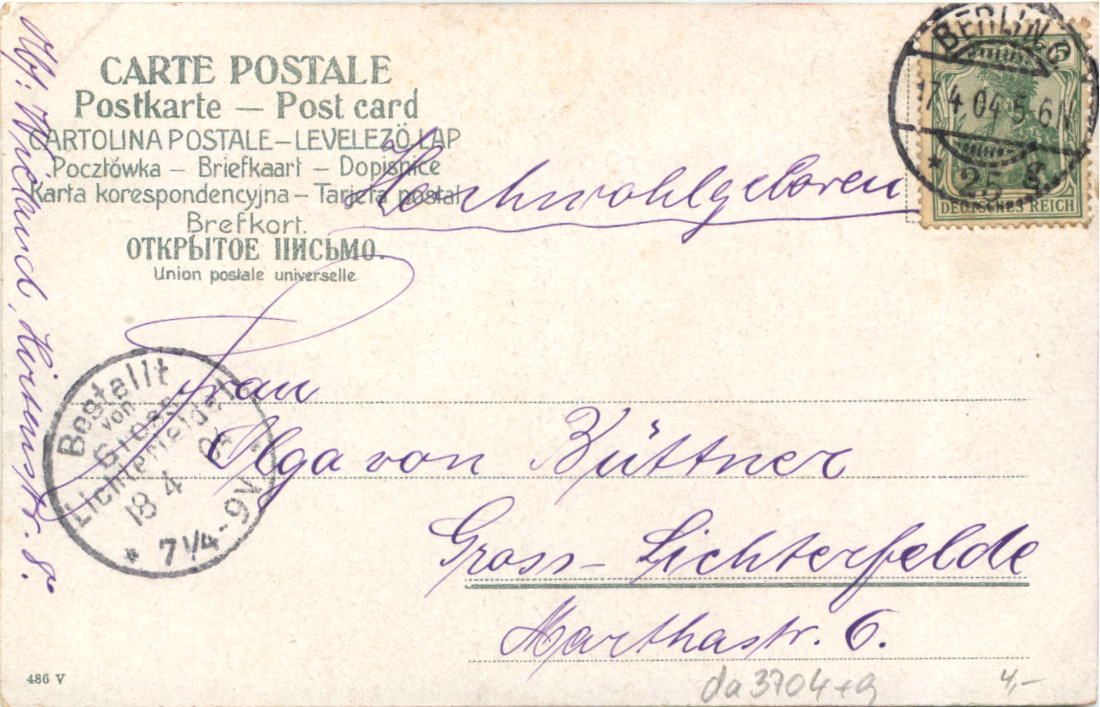 CARTE POSTALE
Postkarte — Post card
CARTOLINA POSTALE – LEVELEZÖ-LAP
Pocztówka – Briefkaart – Dopisnice
Karta korespondencyjna – Tarjeta postal
Brefkort.
ОТКРЫТОЕ ПИСЬМО.
Union postale universelle
BERLIN C
17.4.04. 5-6N.
* 25 g.
5
DEUTSCHES REICH
Hochwohlgeboren
Frau
Olga von Büttner
Gross-Lichterfelde
Marthastr. 6.
Abs: Wieland, Hirtenstr. 8.
Bestellt
von
Gross-
Lichterfelde
18 4
* 7 1/4 - 9V.
486 V
da 3704+g
4,-